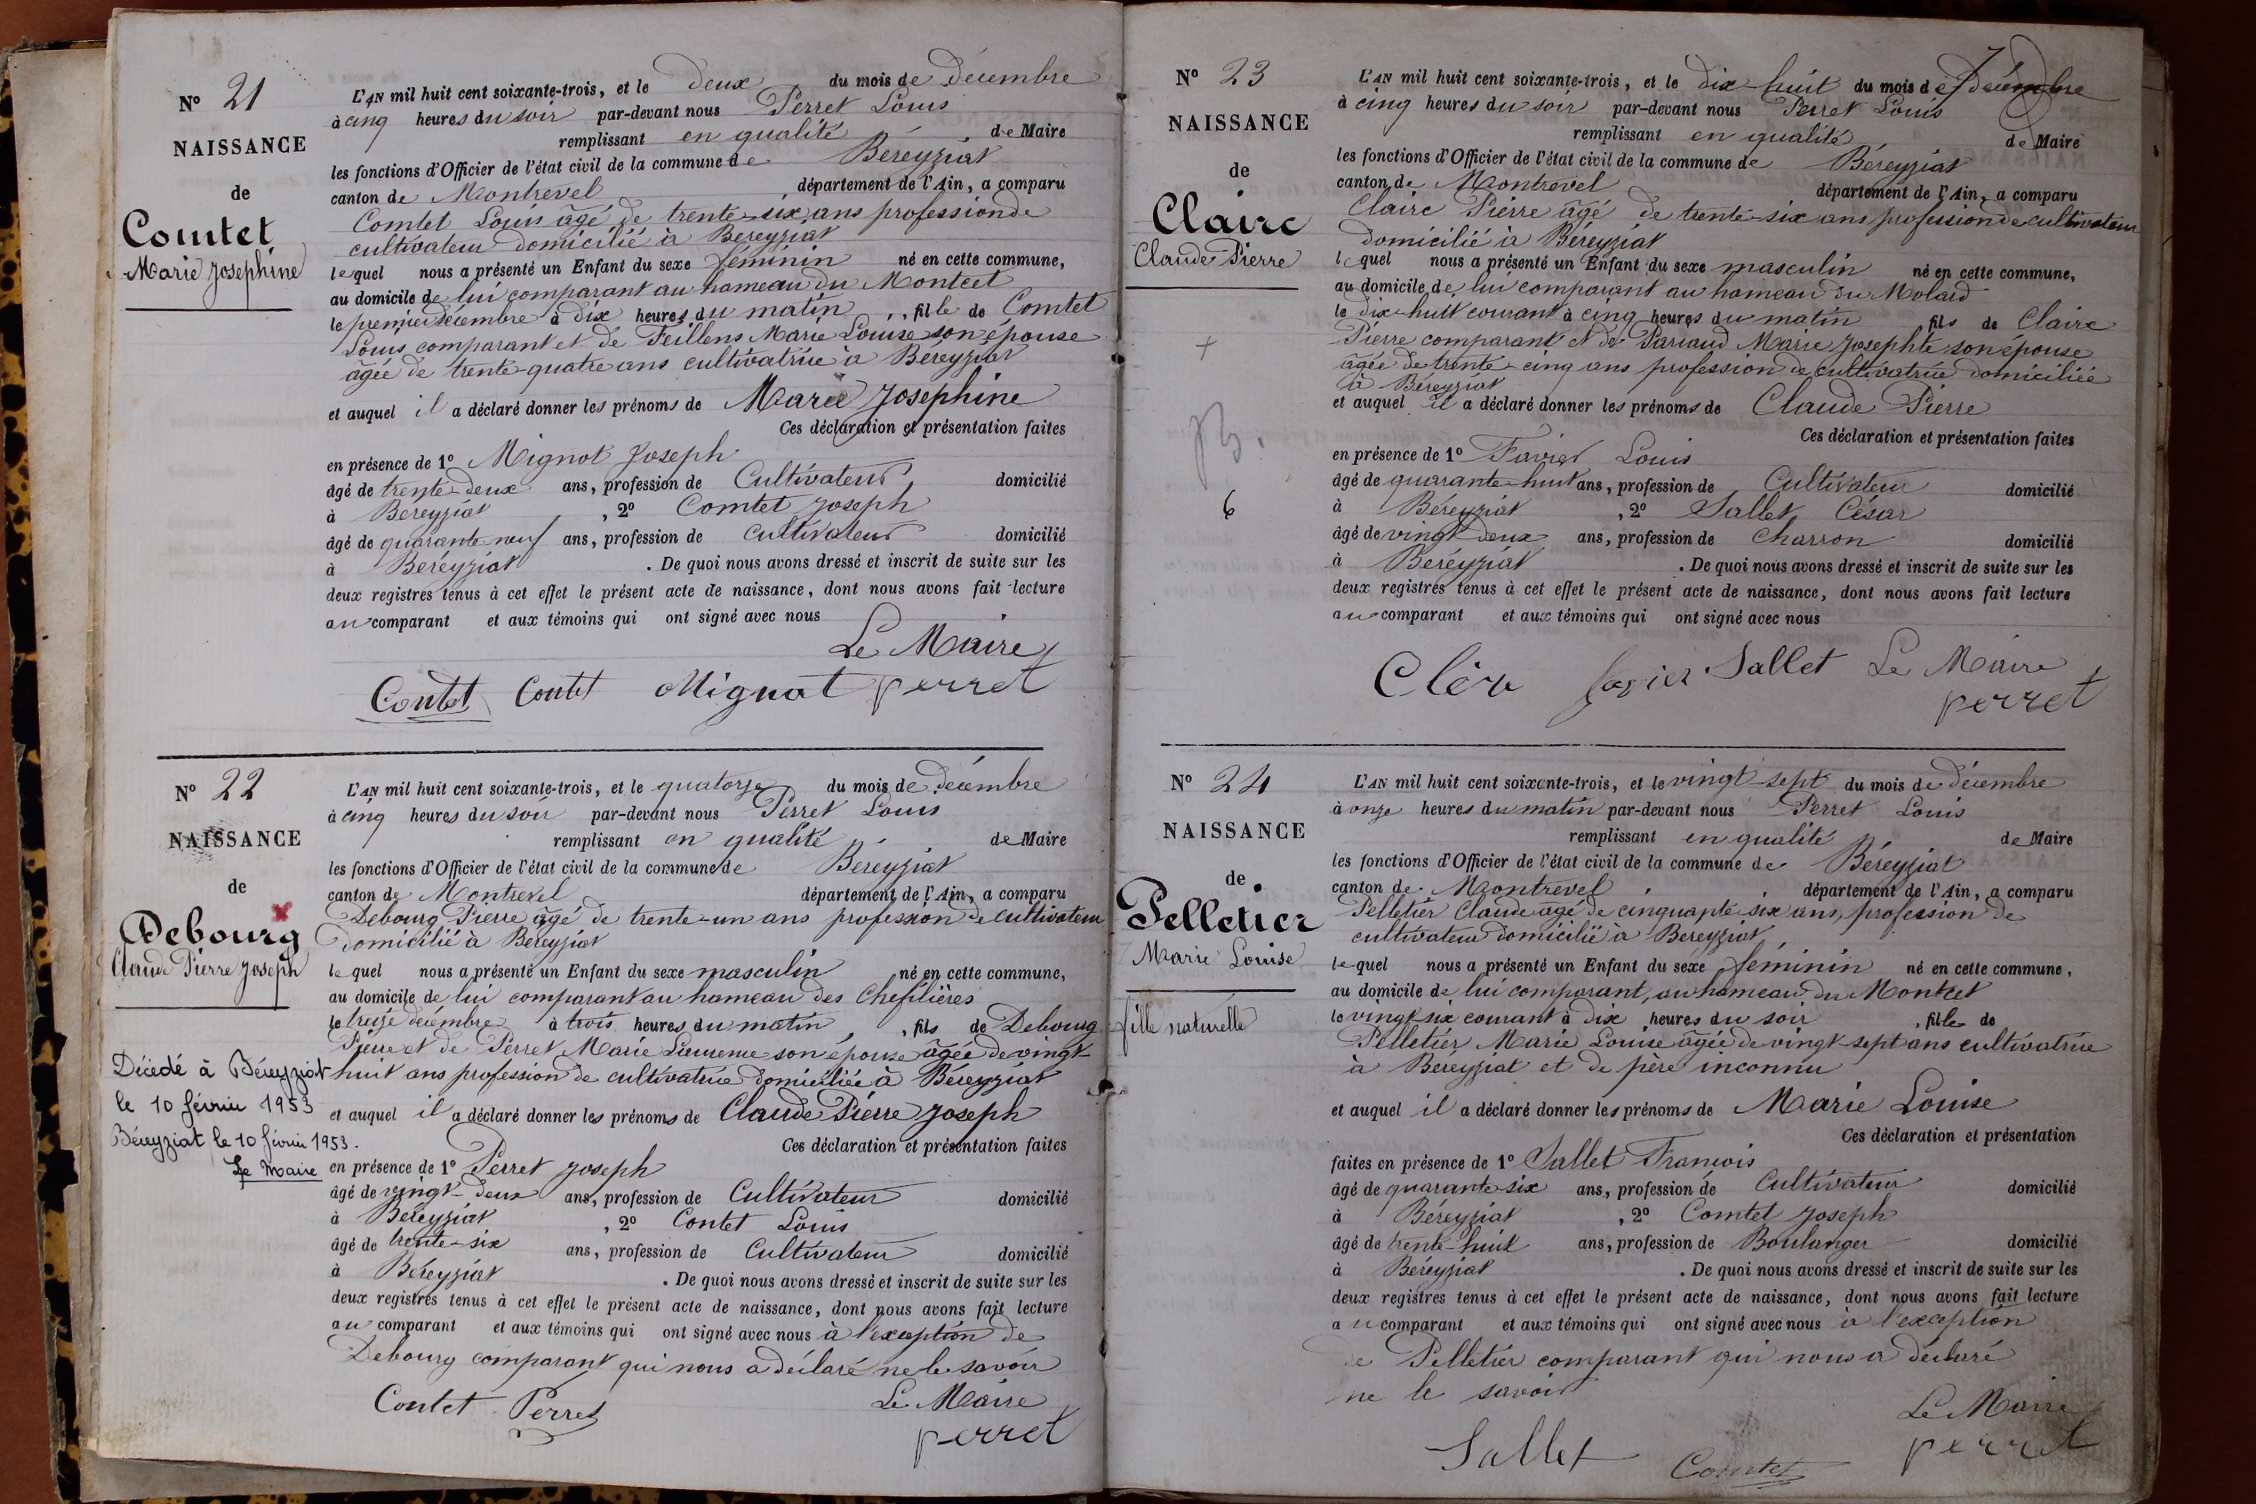 N° 21
NAISSANCE
de
Comtet
Marie Josephine
L'AN mil huit cent soixante-trois, et le deux du mois de Décembre
à cinq heures du soir par-devant nous Perret Louis
remplissant en qualité de Maire
les fonctions d'Officier de l'état civil de la commune de Béreyziat
canton de Montrevel département de l'Ain, a comparu
Comtet Louis âgé de trente-six ans profession de
cultivateur domicilié à Béreyziat
lequel nous a présenté un Enfant du sexe féminin né en cette commune,
au domicile de lui comparant au hameau du Montcet
le premier décembre à dix heures du matin, fille de Comtet
Louis comparant et de Feillens Marie Louise son épouse
âgée de trente-quatre ans cultivatrice à Béreyziat
et auquel il a déclaré donner les prénoms de Marie Josephine
Ces déclaration et présentation faites
en présence de 1° Mignot Joseph
âgé de trente-deux ans, profession de Cultivateur domicilié
à Béreyziat, 2° Comtet Joseph
âgé de quarante-neuf ans, profession de Cultivateur domicilié
à Béreyziat. De quoi nous avons dressé et inscrit de suite sur les
deux registres tenus à cet effet le présent acte de naissance, dont nous avons fait lecture
au comparant et aux témoins qui ont signé avec nous
Le Maire
Contet Contet Mignot perret
N° 22
NAISSANCE
de
Debourg
Claude Pierre Joseph
Décédé à Béreyziat
le 10 février 1953
Béreyziat le 10 février 1953.
Le Maire
L'AN mil huit cent soixante-trois, et le quatorze du mois de décembre
à cinq heures du soir par-devant nous Perret Louis
remplissant en qualité de Maire
les fonctions d'Officier de l'état civil de la commune de Béreyziat
canton de Montrevel département de l'Ain, a comparu
Debourg Pierre âgé de trente-un ans profession de cultivateur
domicilié à Béreyziat
lequel nous a présenté un Enfant du sexe masculin né en cette commune,
au domicile de lui comparant au hameau des
le treize décembre à trois heures du matin, fils de Debourg
Pierre et de Perret Marie Laurence son épouse âgée de vingt-
huit ans profession de cultivatrice domiciliée à Béreyziat
et auquel il a déclaré donner les prénoms de Claude Pierre Joseph
Ces déclaration et présentation faites
en présence de 1° Perret Joseph
âgé de vingt-deux ans, profession de Cultivateur domicilié
à Béreyziat, 2° Contet Louis
âgé de trente-six ans, profession de Cultivateur domicilié
à Béreyziat. De quoi nous avons dressé et inscrit de suite sur les
deux registres tenus à cet effet le présent acte de naissance, dont nous avons fait lecture
au comparant et aux témoins qui ont signé avec nous à l'exception de
Debourg comparant qui nous a déclaré ne le savoir
Le Maire
Contet Perret perret
N° 23
NAISSANCE
de
Claire
Claude Pierre
6
L'AN mil huit cent soixante-trois, et le dix-huit du mois de Décembre
à cinq heures du soir par-devant nous Perret Louis
remplissant en qualité de Maire
les fonctions d'Officier de l'état civil de la commune de Béreyziat
canton de Montrevel département de l'Ain, a comparu
Claire Pierre âgé de trente-six ans profession de cultivateur
domicilié à Béreyziat
lequel nous a présenté un Enfant du sexe masculin né en cette commune,
au domicile de lui comparant au hameau du Molard
le dix-huit courant à cinq heures du matin fils de Claire
Pierre comparant et de Pariaud Marie Josephte son épouse
âgée de trente-cinq ans profession de cultivatrice domiciliée
à Béreyziat
et auquel il a déclaré donner les prénoms de Claude Pierre
Ces déclaration et présentation faites
en présence de 1° Favier Louis
âgé de quarante-huit ans, profession de Cultivateur domicilié
à Béreyziat, 2° Sallet César
âgé de vingt-deux ans, profession de charron domicilié
à Béreyziat. De quoi nous avons dressé et inscrit de suite sur les
deux registres tenus à cet effet le présent acte de naissance, dont nous avons fait lecture
au comparant et aux témoins qui ont signé avec nous
Clére favier Sallet Le Maire
perret
N° 24
NAISSANCE
de
Pelletier
Marie Louise
fille naturelle
L'AN mil huit cent soixante-trois, et le vingt-sept du mois de décembre
à onze heures du matin par-devant nous Perret Louis
remplissant en qualité de Maire
les fonctions d'Officier de l'état civil de la commune de Béreyziat
canton de Montrevel département de l'Ain, a comparu
Pelletier Claude âgé de cinquante-six ans, profession de
cultivateur domicilié à Béreyziat
lequel nous a présenté un Enfant du sexe féminin né en cette commune,
au domicile de lui comparant, au hameau du Montcet
le vingt-six courant à dix heures du soir, fille de
Pelletier Marie Louise âgée de vingt-sept ans cultivatrice
à Béreyziat et de père inconnu
et auquel il a déclaré donner les prénoms de Marie Louise
Ces déclaration et présentation
faites en présence de 1° Sallet François
âgé de quarante-six ans, profession de Cultivateur domicilié
à Béreyziat, 2° Comtet Joseph
âgé de trente-huit ans, profession de Boulanger domicilié
à Béreyziat. De quoi nous avons dressé et inscrit de suite sur les
deux registres tenus à cet effet le présent acte de naissance, dont nous avons fait lecture
au comparant et aux témoins qui ont signé avec nous à l'exception
de Pelletier comparant qui nous a déclaré
ne le savoir
Le Maire
Sallet Comtet perret